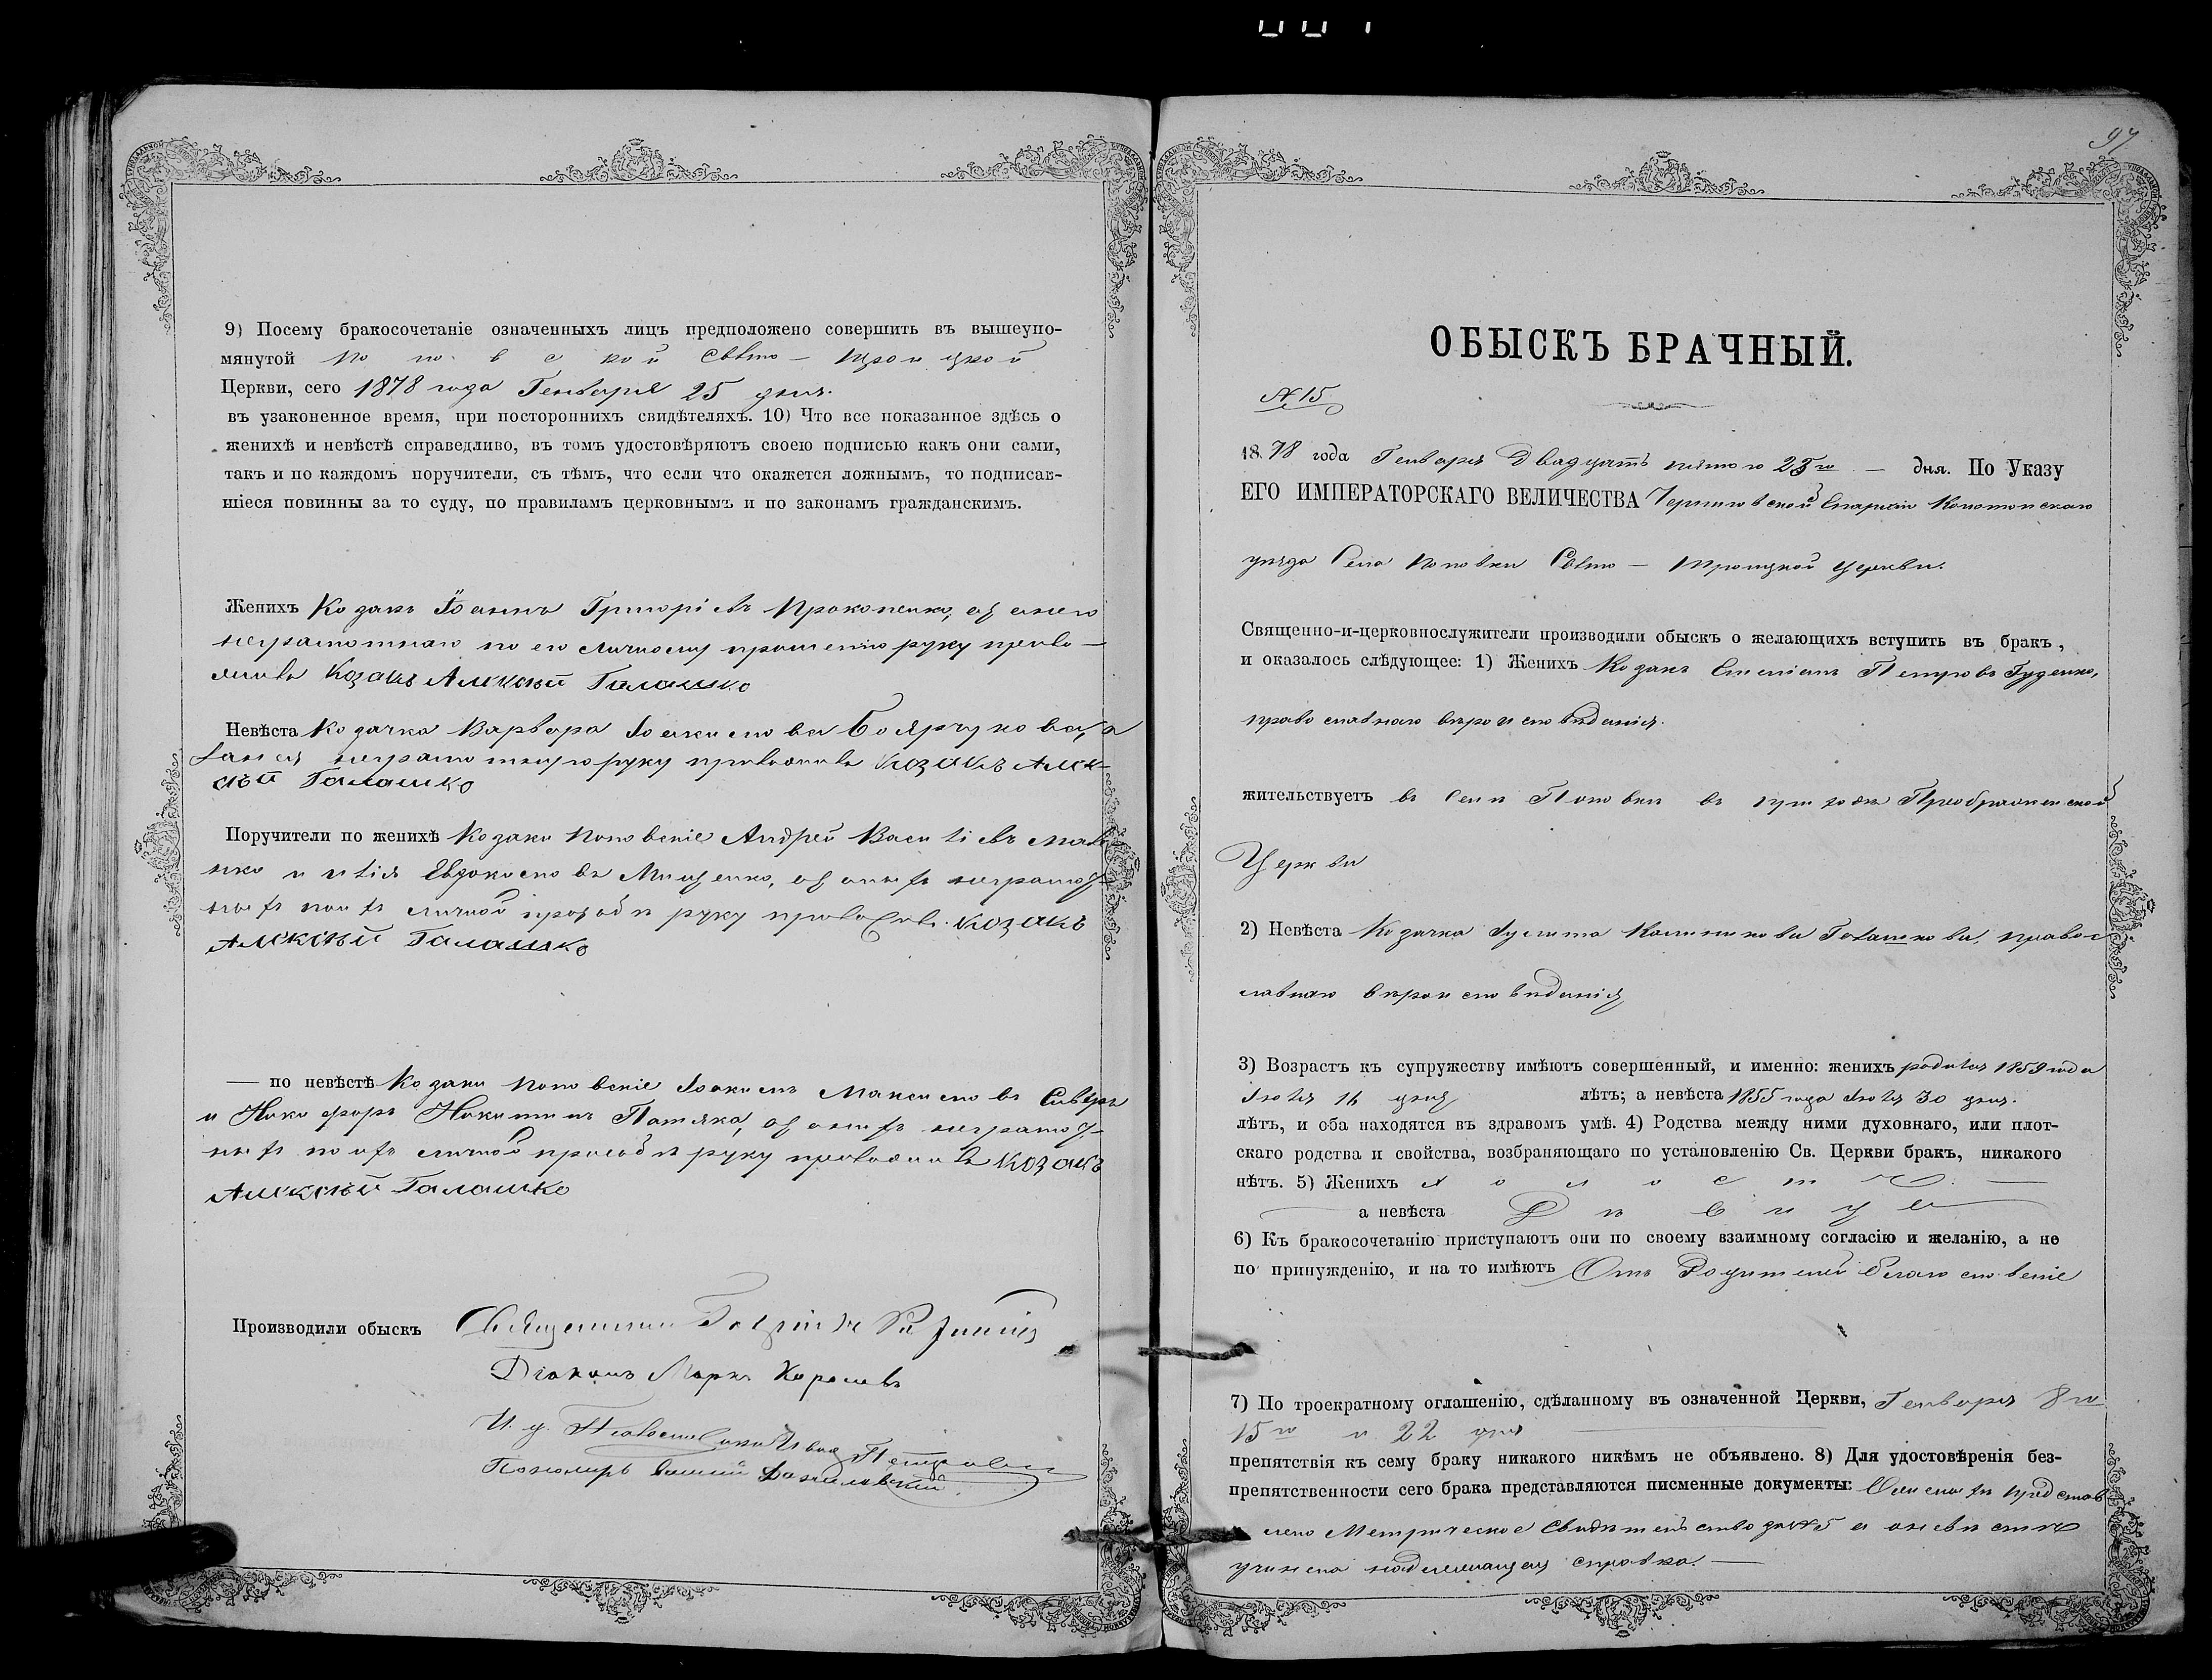 9) Посему бракосочетаніе означенныхъ лицъ предположено совершить въ вышеупо-
мянутой Поповской Свято-Троицкой
Церкви, сего 1878 года Генваря 25 дня.
въ узаконенное время, при постороннихъ свидѣтеляхъ. 10) Что все показанное здѣсь о
женихѣ и невѣстѣ справедливо, въ томъ удостовѣряютъ своею подписью какъ они сами,
такъ и по каждомъ поручители, съ тѣмъ, что если что окажется ложнымъ, то подписав-
шіеся повинны за то суду, по правиламъ церковнымъ и по законамъ гражданскимъ.
Женихъ Козакъ Іоаннъ Григоріевъ Прокопенко, а за него
неграмотнаго по его личному прошенію руку прило-
жилъ Козакъ Алексѣй Галашко
Невѣста Козачка Варвара Іоакимова Боярчукова, а
за нея неграмотную руку приложилъ козакъ Алек-
сѣй Галашко
Поручители по женихѣ Козаки Поповскіе Андрей Васильевъ
и Илія Евдокимовъ Мищенко, а за нихъ неграмот-
ныхъ по ихъ личной прозьбѣ руку приложилъ козакъ
Алексѣй Галашко
— по невѣстѣ Козаки Поповскіе Іоакимъ Максимовъ
и Никифоръ Никитинъ Потяка, а за нихъ неграмот-
ныхъ по ихъ личной прозьбѣ руку приложилъ козакъ
Алексѣй Галашко
Производили обыскъ Священникъ
Діаконъ Маркъ Королевъ
И. д. Псаломщика Иванъ Петровскій
Пономарь Данилевскій
97
ОБЫСКЪ БРАЧНЫЙ.
№ 15
1878 года Генваря Двадцать пятого 25го — дня. По Указу
ЕГО ИМПЕРАТОРСКАГО ВЕЛИЧЕСТВА Черниговской Епархіи Конотопскаго
уѣзда Села Поповки Свято-Троицкой церкви.
Священно-и-церковнослужители производили обыскъ о желающихъ вступить въ бракъ,
и оказалось слѣдующее: 1) Женихъ Козакъ Стефанъ Петровъ Гуденко,
православнаго вѣроисповѣданія.
жительствуетъ въ селѣ Поповки въ приходѣ Преображенской
Церкви
2) Невѣста Козачка Іулита Калиникова Галашкова, право-
славнаго вѣроисповѣданія
3) Возрастъ къ супружеству имѣютъ совершенный, и именно: женихъ родился 1859 года
Іюля 16 дня лѣтъ; а невѣста 1855 года Іюля 30 дня.
лѣтъ, и оба находятся въ здравомъ умѣ. 4) Родства между ними духовнаго, или плот-
скаго родства и свойства, возбраняющаго по установленію Св. Церкви бракъ, никакого
нѣтъ. 5) Женихъ холостъ
а невѣста Дѣвица
6) Къ бракосочетанію приступаютъ они по своему взаимному согласію и желанію, а не
по принужденію, и на то имѣютъ Отъ Родителей благословеніе
7) По троекратному оглашенію, сдѣланному въ означенной Церкви, Генваря 8го
15го и 22 дня
препятствія къ сему браку никакого никѣмъ не объявлено. 8) Для удостовѣренія без-
препятственности сего брака представляются писменные документы: О женихѣ представ
лено Метрическое свидѣтельство за № 5 а о невѣстѣ
учинена надлежащая справка. —